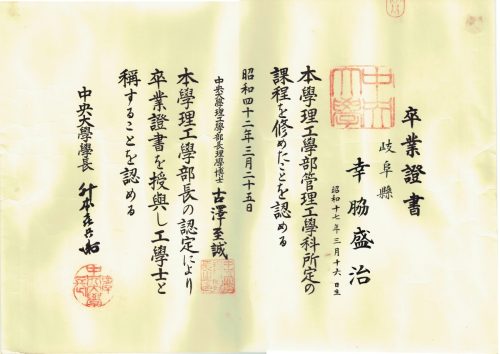 卒業證書
岐阜縣
幸脇盛治
昭和十七年三月十六日生
本學理工學部管理工學科所定の
課程を修めたことを認める
昭和四十二年三月二十五日
中央大學理工學部長理學博士 古澤至誠
本學理工學部長の認定により
卒業證書を授與し工學士と
稱することを認める
中央大學學長
中央大學